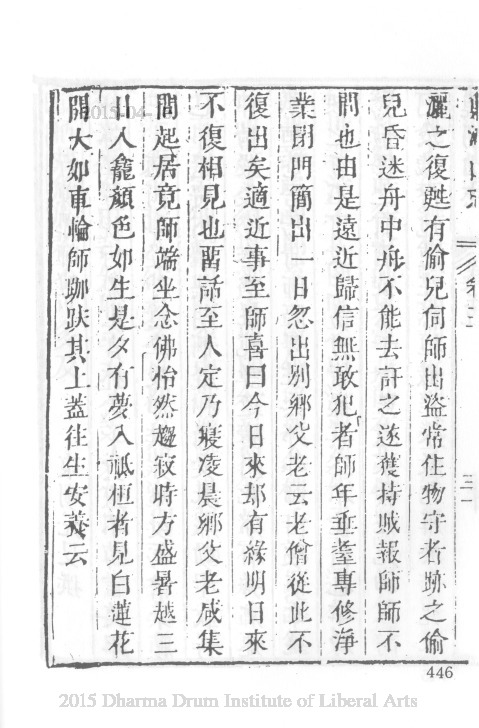 灑之復甦有偷兒伺師出盜常住物守者跡之偷
兒昏迷舟中舟不能去訐之遂獲持贓報師師不
問也由是遠近歸信無敢犯者師年垂耋專修淨
業閉門簡出一日忽出別鄉父老云老僧從此不
復出矣適近事至師喜曰今日來却有緣明日來
不復相見也畱話至人定乃寢凌晨鄉父老咸集
問起居竟師端坐念佛怡然趨寂時方盛暑越三
日入龕顏色如生是夕有夢入祇桓者見白蓮花
開大如車輪師跏趺其上蓋往生安養云
446
2015-04-
2015 Dharma Drum Institute of Liberal Arts